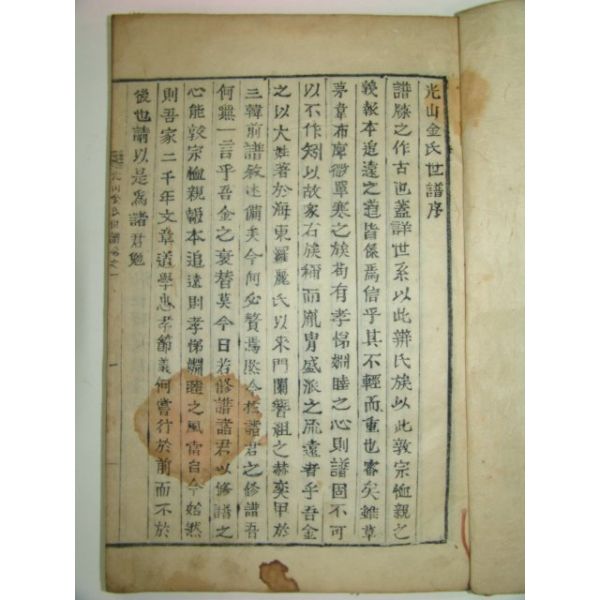 光山金氏世譜序
譜牒之作古也蓋詳世系以此辨氏族以此敦宗恤親之
義報本追遠之道皆係焉信乎其不輕而重也審矣雖草
茅韋布寒微單寒之族苟有孝悌婣睦之心則譜固不可
以不作矧以故家右族稱而胤胄盛派之流遠者乎吾金
之以大姓著於海東羅麗氏以來門闌簪組之赫奕甲於
三韓前譜敘述備矣今何必贅焉然今於諸君之修譜吾
何無一言乎吾金之衰替莫今日若修譜諸君以修譜之
心能敦宗恤親報本追遠則孝悌婣睦之風當自今始然
則吾家二千年文章道學忠孝節義何嘗行於前而不於
後也請以是爲諸君勉
光山金氏世譜卷之一